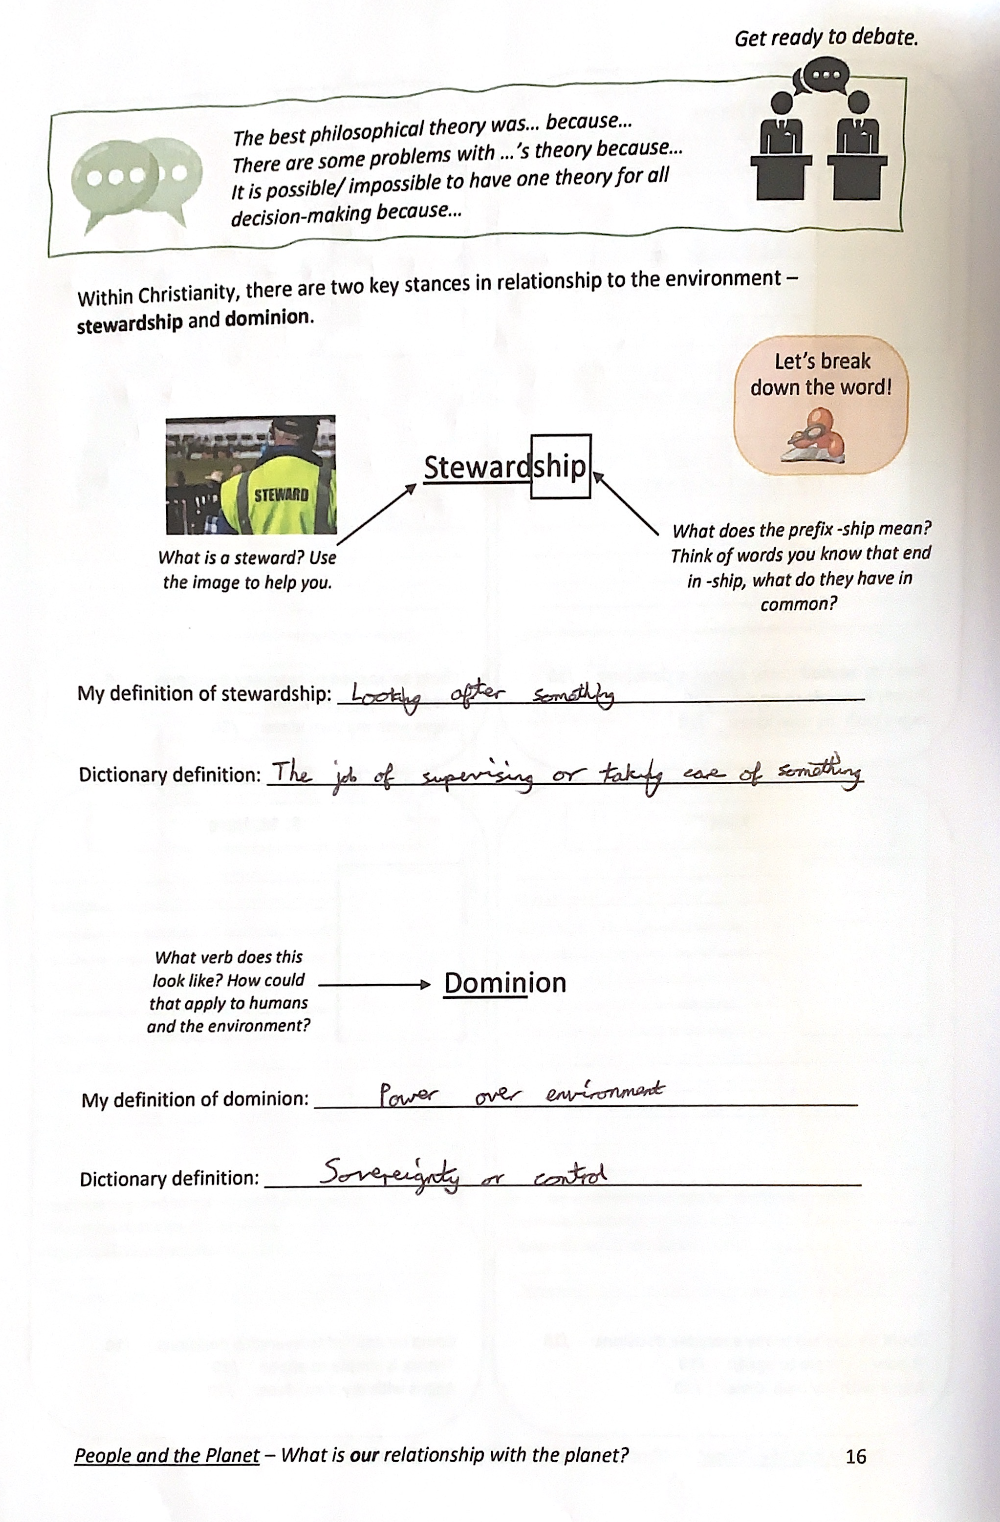 Get ready to debate.
The best philosophical theory was... because...
There are some problems with ...'s theory because...
It is possible/ impossible to have one theory for all
decision-making because...
Within Christianity, there are two key stances in relationship to the environment –
stewardship and dominion.
Let's break
down the word!
STEWARD
Stewardship
What is a steward? Use
the image to help you.
What does the prefix -ship mean?
Think of words you know that end
in -ship, what do they have in
common?
My definition of stewardship: Looking after something
Dictionary definition: The job of supervising or taking care of something
What verb does this
look like? How could
that apply to humans
and the environment?
Dominion
My definition of dominion: Power over environment
Dictionary definition: Sovereignty or control
People and the Planet – What is our relationship with the planet?
16